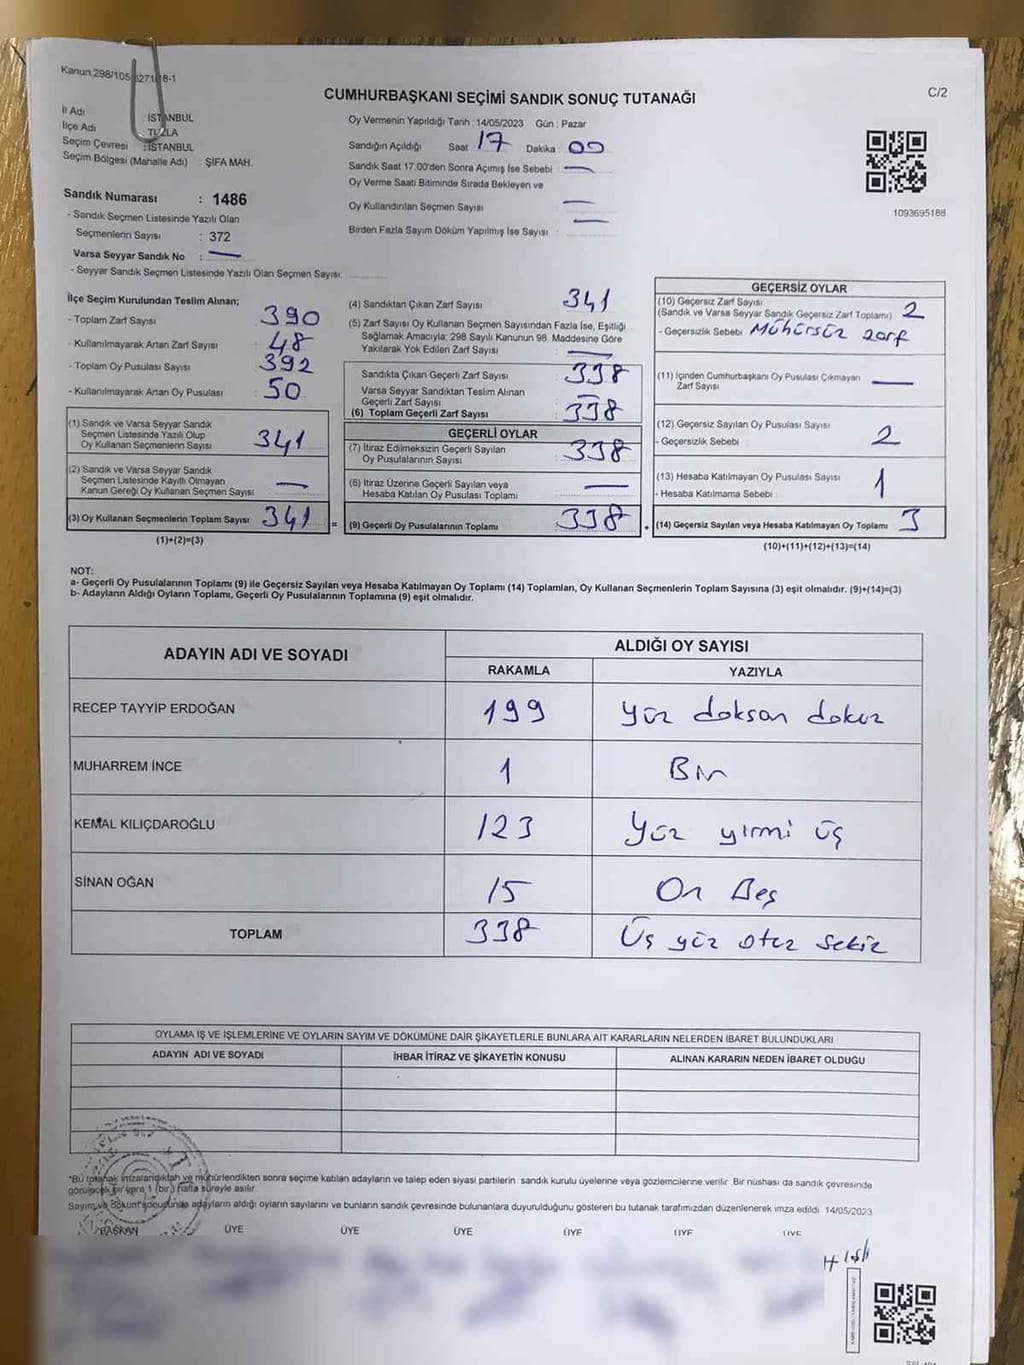 Kanun:298/105 6271/18-1
CUMHURBAŞKANI SEÇİMİ SANDIK SONUÇ TUTANAĞI
C/2
İl Adı : İSTANBUL
İlçe Adı : TUZLA
Seçim Çevresi : İSTANBUL
Seçim Bölgesi (Mahalle Adı) ŞİFA MAH.
Oy Vermenin Yapıldığı Tarih : 14/05/2023 Gün : Pazar
Sandığın Açıldığı Saat : 17 Dakika : 00
Sandık Saat 17:00'den Sonra Açımış İse Sebebi —
Oy Verme Saati Bitiminde Sırada Bekleyen ve
Oy Kullandırılan Seçmen Sayısı —
Birden Fazla Sayım Döküm Yapılmış İse Sayısı : —
1093695188
Sandık Numarası : 1486
- Sandık Seçmen Listesinde Yazılı Olan
Seçmenlerin Sayısı : 372
Varsa Seyyar Sandık No : —
- Seyyar Sandık Seçmen Listesinde Yazılı Olan Seçmen Sayısı:
İlçe Seçim Kurulundan Teslim Alınan;
- Toplam Zarf Sayısı 390
- Kullanılmayarak Artan Zarf Sayısı 48
- Toplam Oy Pusulası Sayısı 392
- Kullanılmayarak Artan Oy Pusulası 50
(1) Sandık ve Varsa Seyyar Sandık
Seçmen Listesinde Yazılı Olup
Oy Kullanan Seçmenlerin Sayısı 341
(2) Sandık ve Varsa Seyyar Sandık
Seçmen Listesinde Kayıtlı Olmayan
Kanun Gereği Oy Kullanan Seçmen Sayısı —
(3) Oy Kullanan Seçmenlerin Toplam Sayısı 341
(1)+(2)=(3)
(4) Sandıktan Çıkan Zarf Sayısı 341
(5) Zarf Sayısı Oy Kullanan Seçmen Sayısından Fazla İse, Eşitliği
Sağlamak Amacıyla; 298 Sayılı Kanunun 98. Maddesine Göre
Yakılarak Yok Edilen Zarf Sayısı —
Sandıkta Çıkan Geçerli Zarf Sayısı 338
Varsa Seyyar Sandıktan Teslim Alınan
Geçerli Zarf Sayısı —
(6) Toplam Geçerli Zarf Sayısı 338
GEÇERLİ OYLAR
(7) İtiraz Edilmeksizin Geçerli Sayılan
Oy Pusulalarının Sayısı 338
(8) İtiraz Üzerine Geçerli Sayılan veya
Hesaba Katılan Oy Pusulası Toplamı —
= (9) Geçerli Oy Pusulalarının Toplamı 338
GEÇERSİZ OYLAR
(10) Geçersiz Zarf Sayısı
(Sandık ve Varsa Seyyar Sandık Geçersiz Zarf Toplamı) 2
- Geçersizlik Sebebi Mühürsüz zarf
(11) İçinden Cumhurbaşkanı Oy Pusulası Çıkmayan
Zarf Sayısı —
(12) Geçersiz Sayılan Oy Pusulası Sayısı
- Geçersizlik Sebebi 2
(13) Hesaba Katılmayan Oy Pusulası Sayısı 1
- Hesaba Katılmama Sebebi
+ (14) Geçersiz Sayılan veya Hesaba Katılmayan Oy Toplamı 3
(10)+(11)+(12)+(13)=(14)
NOT:
a- Geçerli Oy Pusulalarının Toplamı (9) ile Geçersiz Sayılan veya Hesaba Katılmayan Oy Toplamı (14) Toplamları, Oy Kullanan Seçmenlerin Toplam Sayısına (3) eşit olmalıdır. (9)+(14)=(3)
b- Adayların Aldığı Oyların Toplamı, Geçerli Oy Pusulalarının Toplamına (9) eşit olmalıdır.
ADAYIN ADI VE SOYADI ALDIĞI OY SAYISI
RAKAMLA YAZIYLA
RECEP TAYYİP ERDOĞAN 199 Yüz doksan dokuz
MUHARREM İNCE 1 Bir
KEMAL KILIÇDAROĞLU 123 Yüz yirmi üç
SİNAN OĞAN 15 On Beş
TOPLAM 338 Üç yüz otuz sekiz
OYLAMA İŞ VE İŞLEMLERİNE VE OYLARIN SAYIM VE DÖKÜMÜNE DAİR ŞİKAYETLERLE BUNLARA AİT KARARLARIN NELERDEN İBARET BULUNDUKLARI
ADAYIN ADI VE SOYADI İHBAR İTİRAZ VE ŞİKAYETİN KONUSU ALINAN KARARIN NEDEN İBARET OLDUĞU
*Bu tutanak imzalandıktan ve mühürlendikten sonra seçime katılan adayların ve talep eden siyasi partilerin sandık kurulu üyelerine veya gözlemcilerine verilir. Bir nüshası da sandık çevresinde
görülecek bir yere 1 (bir) hafta süreyle asılır.
Sayım ve döküm sonucunda adayların aldığı oyların sayılarını ve bunların sandık çevresinde bulunanlara duyurulduğunu gösteren bu tutanak tarafımızdan düzenlenerek imza edildi 14/05/2023
BAŞKAN ÜYE ÜYE ÜYE ÜYE ÜYE ÜYE